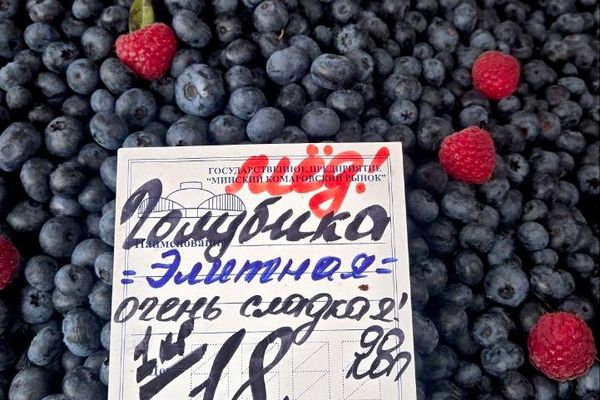 ГОСУДАРСТВЕННОЕ ПРЕДПРИЯТИЕ
"МИНСКИЙ КОМАРОВСКИЙ РЫНОК"
мёд!
Голубика
Наименование
=Элитная=
очень сладкая!
1кг 18. 00 коп